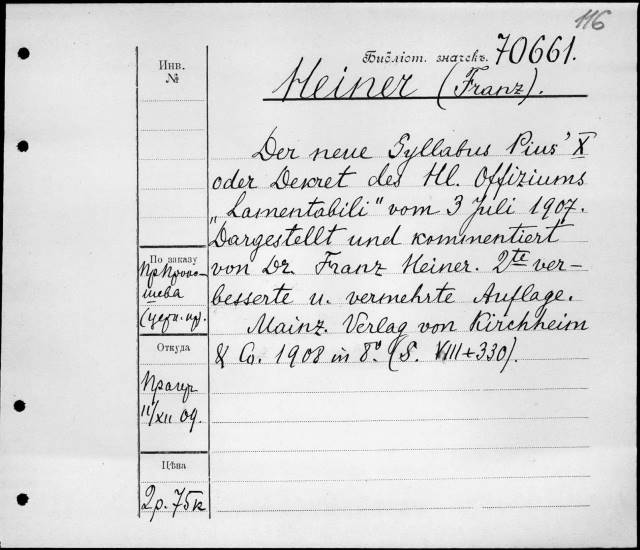 116
Инв.
№
Библіот. значекъ. 70661.
Heiner (Franz).
Der neue Syllabus Pius' X
oder Dekret des Hl. Offiziums
„Lamentabili" vom 3 Juli 1907.
Dargestellt und kommentiert
von Dr. Franz Heiner. 2te ver-
besserte u. vermehrte Auflage.
Mainz. Verlag von Kirchheim
& Co. 1908 in 8º. (S. VIII+330).
По заказу
(церк. пр).
Откуда
11/XII 09.
Цѣна
2р. 75к